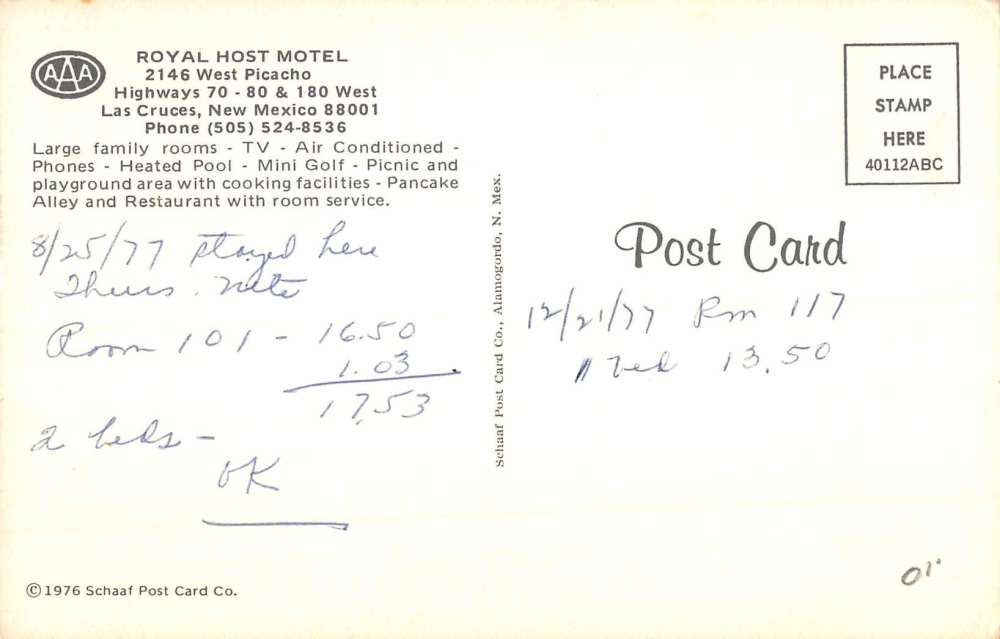 AAA
ROYAL HOST MOTEL
2146 West Picacho
Highways 70 - 80 & 180 West
Las Cruces, New Mexico 88001
Phone (505) 524-8536
Large family rooms - TV - Air Conditioned -
Phones - Heated Pool - Mini Golf - Picnic and
playground area with cooking facilities - Pancake
Alley and Restaurant with room service.
8/25/77 stayed here
Thurs. nite
Room 101 - 16.50
1.03
17.53
2 beds -
OK
©1976 Schaaf Post Card Co.
Schaaf Post Card Co., Alamogordo, N. Mex.
PLACE
STAMP
HERE
40112ABC
Post Card
12/21/77 Rm 117
bed 13.50